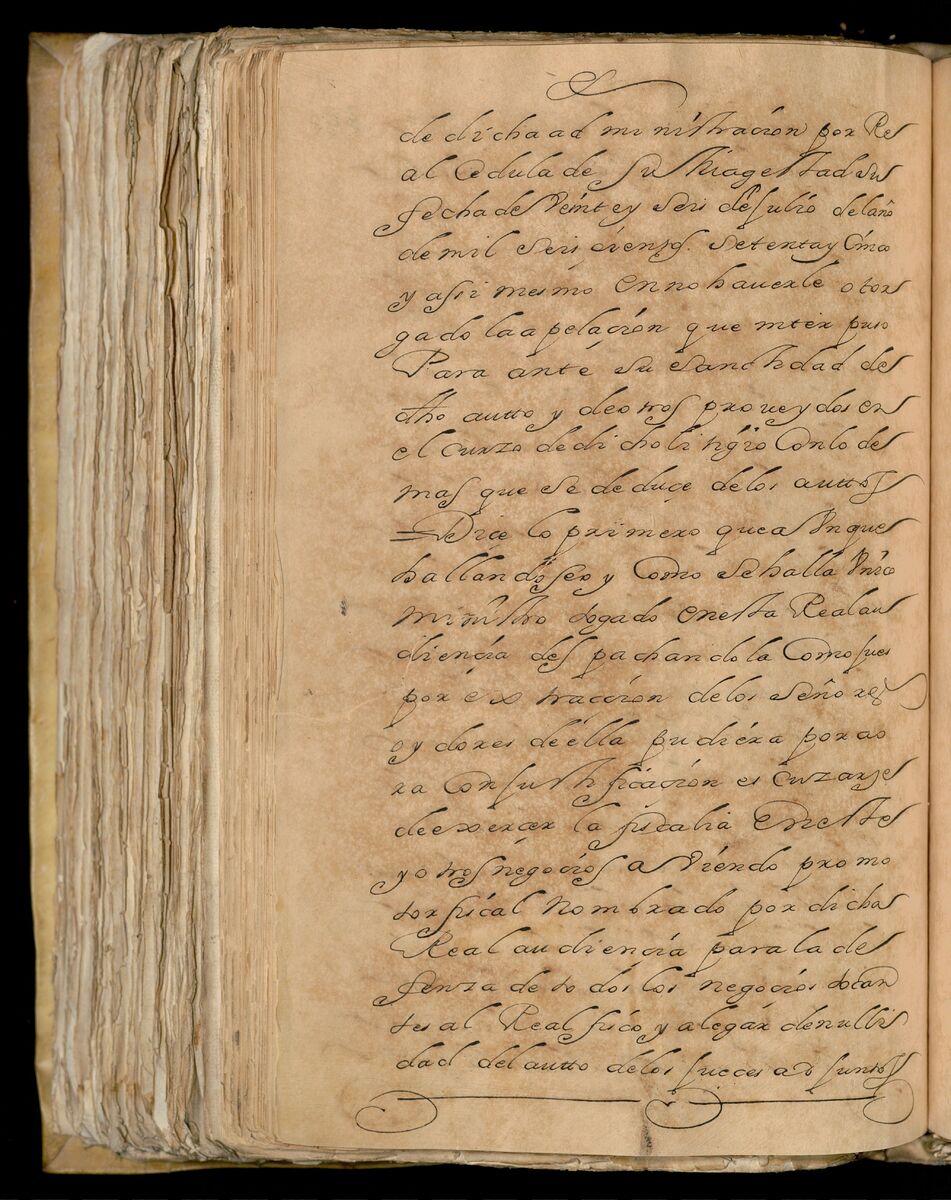 de dicha ad ministracion por Re
al Cedula de Su Magestad su
fecha de Veinte y Seis de Julio del año
de mil Seis ciensos. Setenta y Cinco
y assi mesmo en no hauerle otor
gado la apelacion que inter puso
Para ante Su Sanctidad de
dho autto y de otros proveydos en
el curzo de dicho litigio Con lo de
mas que se deduce de los auttos
= Dice lo primero que a Unque
hallandose y Como se halla Unico
ministro togado en esta Real au
diencia des pachandola Como Jues
por ex traccion de los Señores
oydores de ella pudiera por ao
ra Con justificacion es cuzarse
de exercer la fiscalia en este
y otros negocios a Viendo promo
tor fiscal Nombrado por dicha
Real audiencia para la de
fenza de todos los negocios tocan
tes al Real fisco y alegar de nulli
dad del autto de los Jueces ad juntos